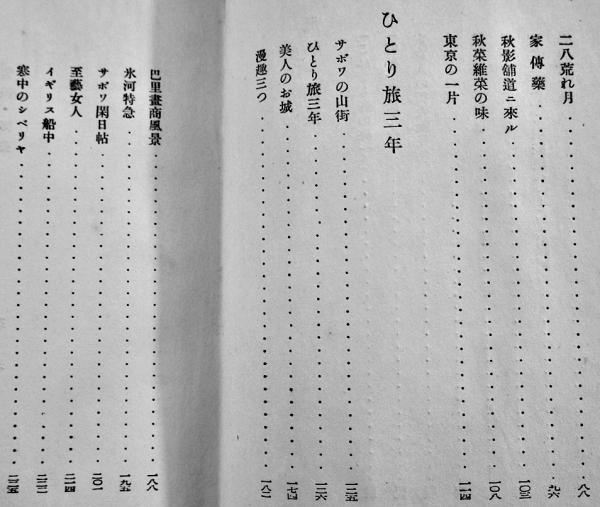 二八荒れ月 八八
家傳藥 九六
秋影舖道ニ來ル 一〇三
秋菜維菜の味 一〇八
東京の一片 一一四
ひとり旅三年
サボワの山街 一二五
ひとり旅三年 一三六
美人のお城 一七四
漫趣三つ 一八二
巴里畫商風景 一八八
氷河特急 一九五
サボワ閑日帖 二〇一
至藝女人 二一四
イギリス船中
寒中のシベリヤ